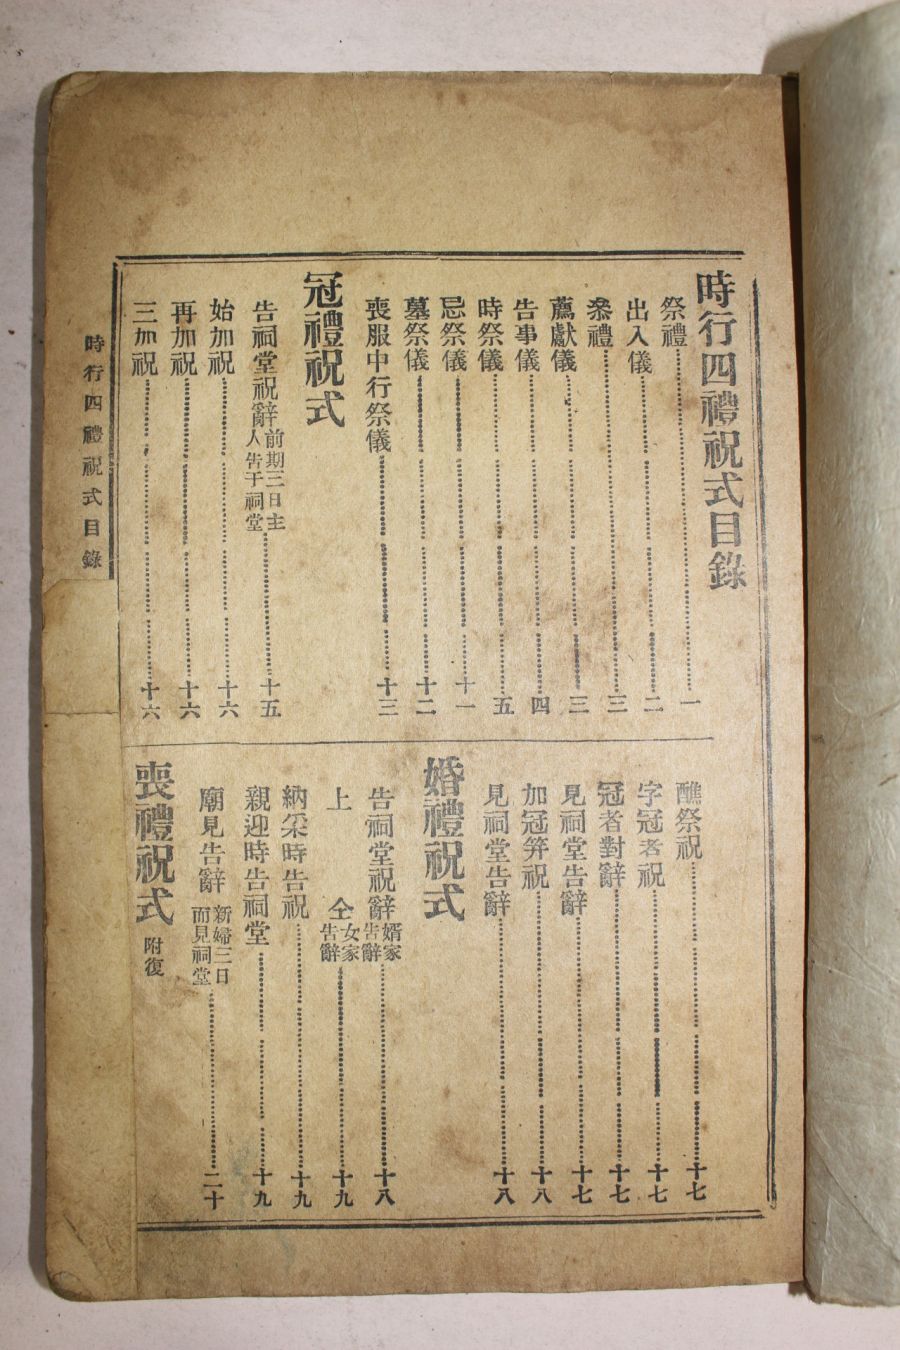 時行四禮祝式目錄
祭禮 一
出入儀 二
叅禮 三
薦獻儀 三
告事儀 四
時祭儀 五
忌祭儀 十一
墓祭儀 十二
喪服中行祭儀 十三
冠禮祝式
告祠堂祝辭 前期三日主人告于祠堂 十五
始加祝 十六
再加祝 十六
三加祝 十六
醮祭祝 十七
字冠者祝 十七
冠者對辭 十七
見祠堂告辭 十七
加冠笄祝 十八
見祠堂告辭 十八
婚禮祝式
告祠堂祝辭 婿家告辭 十八
上仝 女家告辭 十九
納采時告祝 十九
親迎時告祠堂 十九
廟見告辭 新婦三日而見祠堂 二十
喪禮祝式 附復
時行四禮祝式目錄